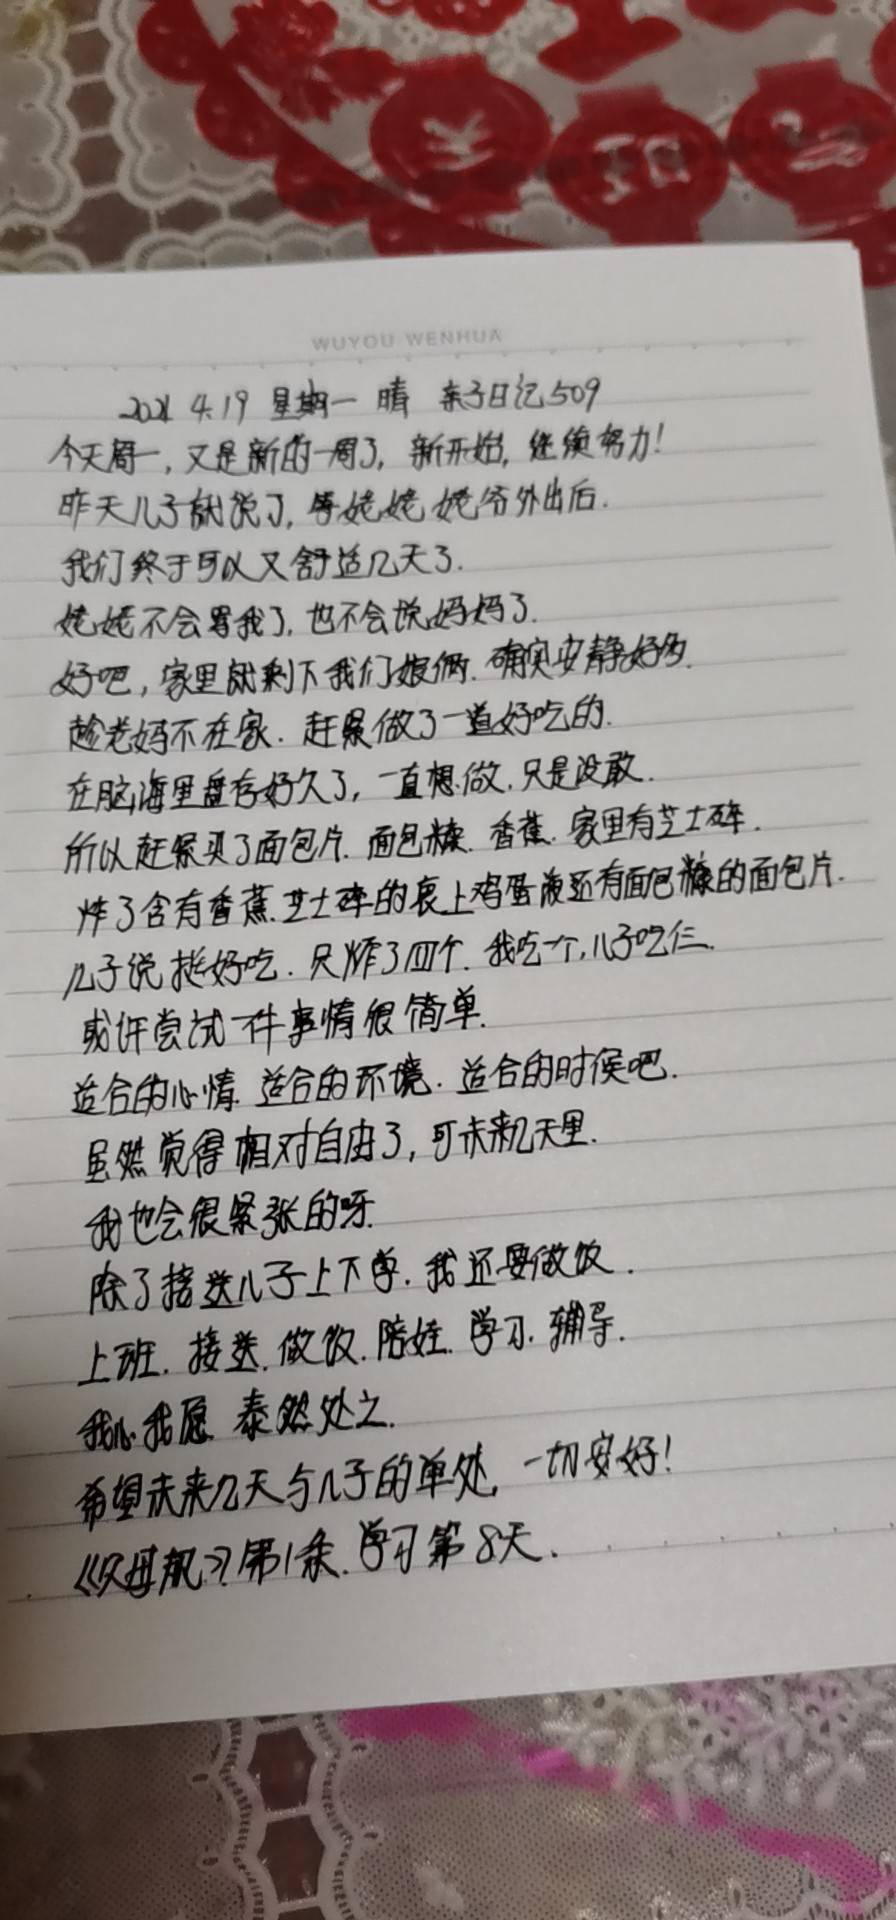 WUYOU WENHUA
2021 4.19 星期一 晴 亲子日记509
今天周一,又是新的一周了,新开始,继续努力!
昨天儿子就说了,等姥姥姥爷外出后.
我们终于可以又舒适几天了.
姥姥不会骂我了,也不会说妈妈了.
好吧,家里就剩下我们娘俩.确实安静好多.
趁老妈不在家.赶紧做了一道好吃的.
在脑海里盘存好久了,一直想做.只是没敢.
所以赶紧买了面包片.面包糠.香蕉.家里有芝士碎.
炸了含有香蕉.芝士碎的裹上鸡蛋液还有面包糠的面包片.
儿子说挺好吃.只炸了四个.我吃一个,儿子吃仨.
或许尝试一件事情很简单.
适合的心情.适合的环境.适合的时候吧.
虽然觉得相对自由了,可未来几天里.
我也会很紧张的呀.
除了接送儿子上下学.我还要做饭.
上班.接送.做饭.陪娃.学习.辅导.
我心我愿 泰然处之.
希望未来几天与儿子的单处,一切安好!
《父母规》第1条.学习第8天.